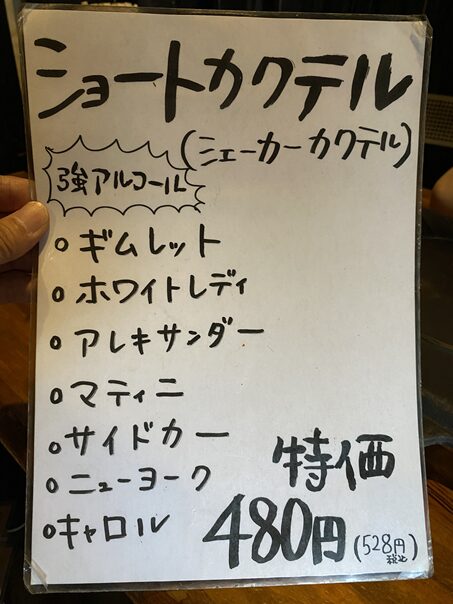 ショートカクテル
(シェーカーカクテル)
強アルコール
○ギムレット
○ホワイトレディ
○アレキサンダー
○マティニ
○サイドカー
○ニューヨーク
○キャロル
特価
480円(528円税込)